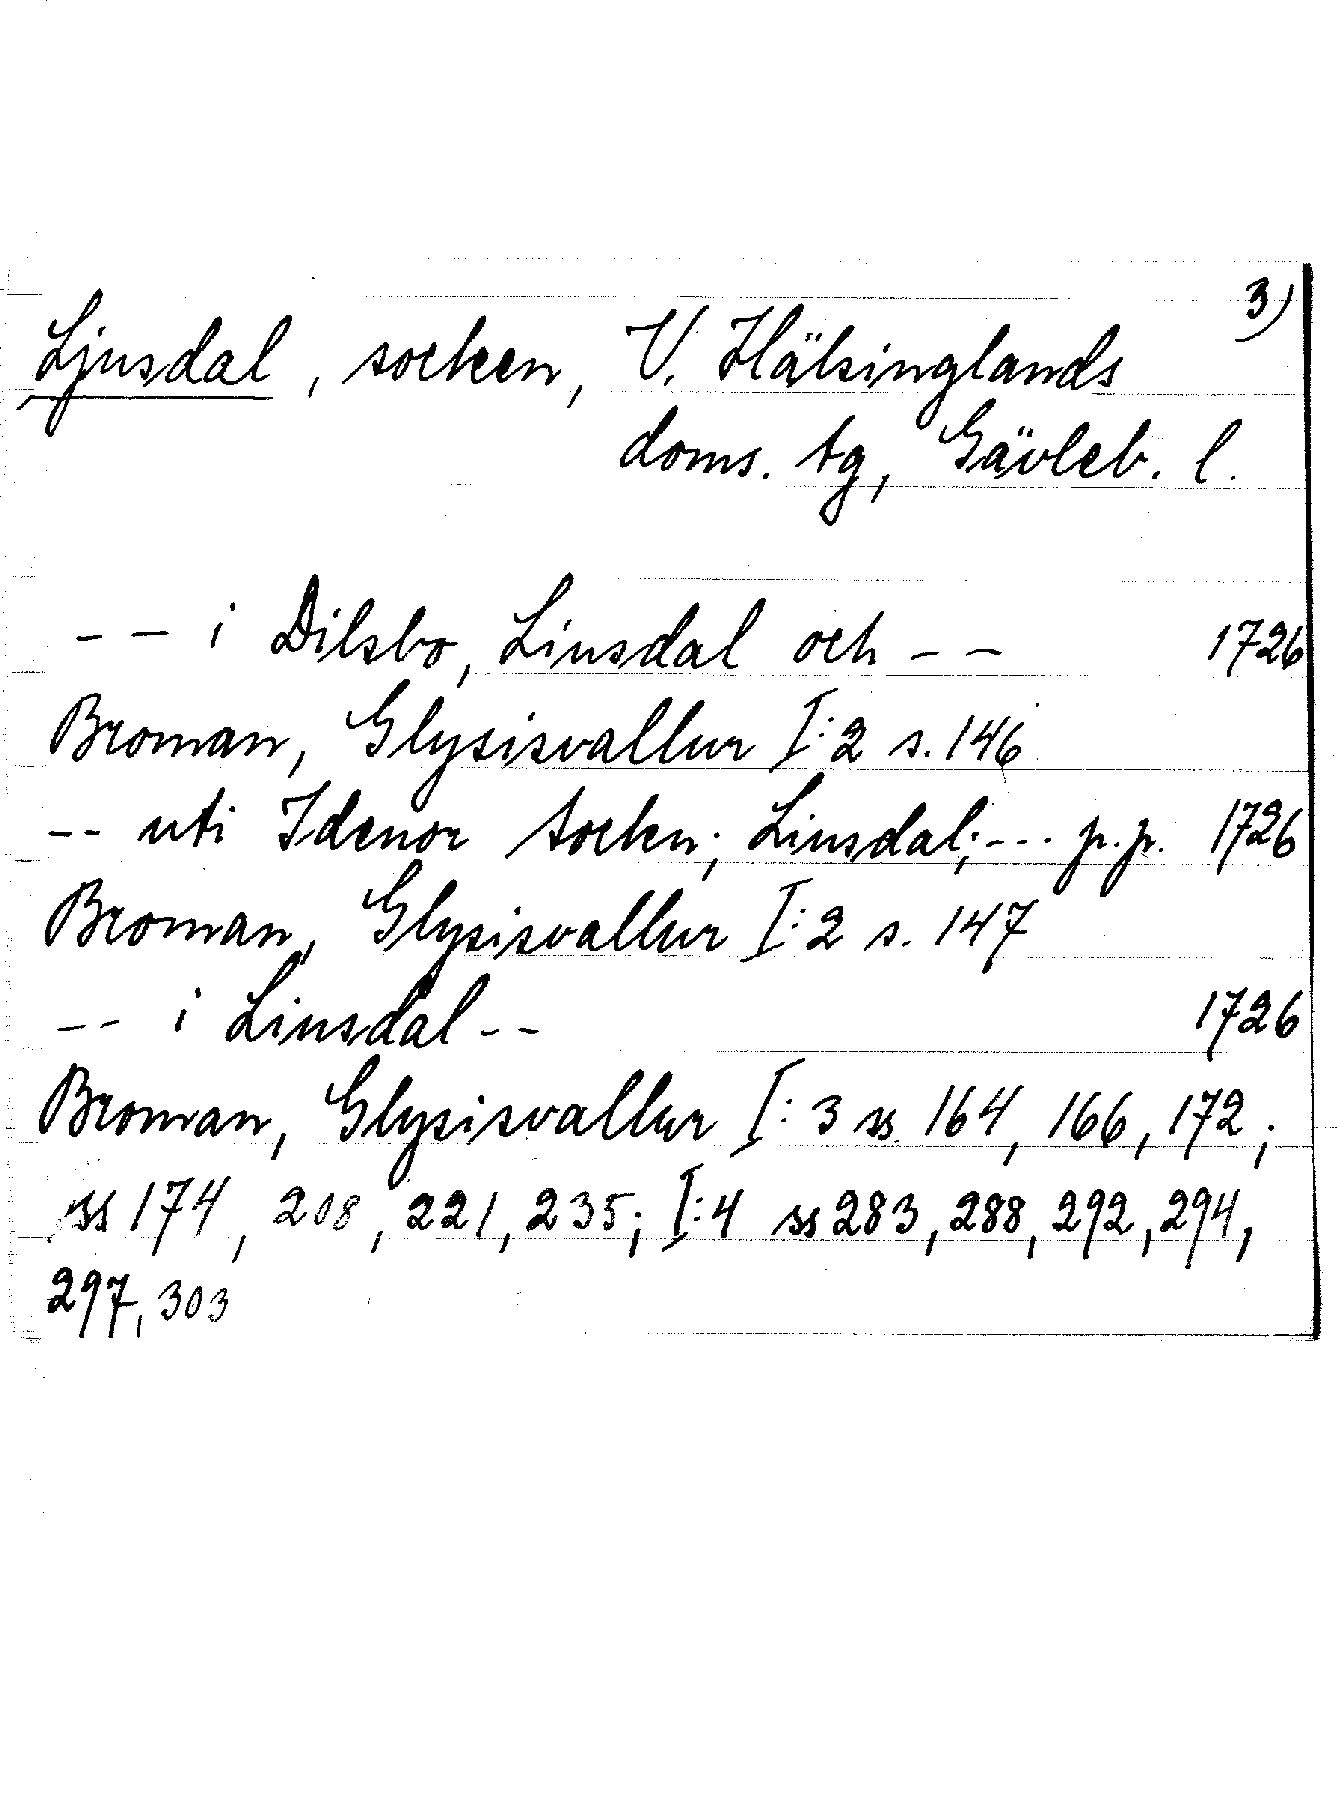 3)
Ljusdal, socken, V. Hälsinglands
doms. tg, Gävleb. l.
-- i Dilsbo, Liusdal och -- 1726
Broman, Glysisvallur I:2 s. 146
-- uti Idenor Socken; Liusdal; --. p.p. 1726
Broman, Glysisvallur I:2 s. 147
-- i Liusdal -- 1726
Broman, Glysisvallur I:3 ss 164, 166, 172;
ss 174, 208, 221, 235; I:4 ss 283, 288, 292, 294,
297, 303